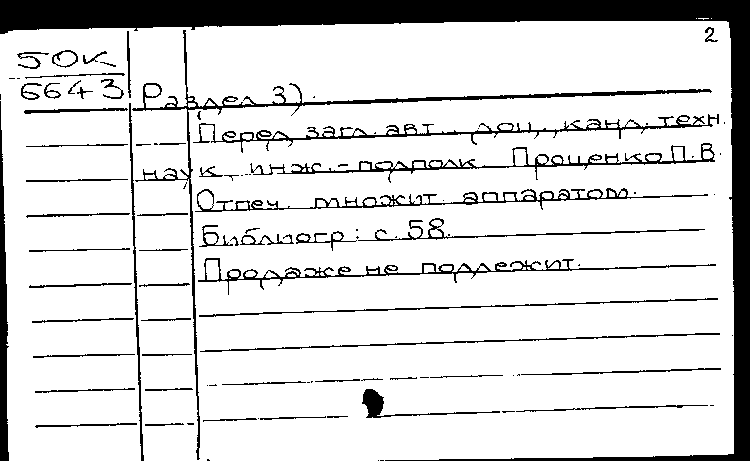 2
50К
6643
Раздел 3).
Перед загл. авт.: доц., канд. техн.
наук, инж.-подполк. Проценко П.В.
Отпеч. множит. аппаратом.
Библиогр: с. 58.
Продаже не подлежит.